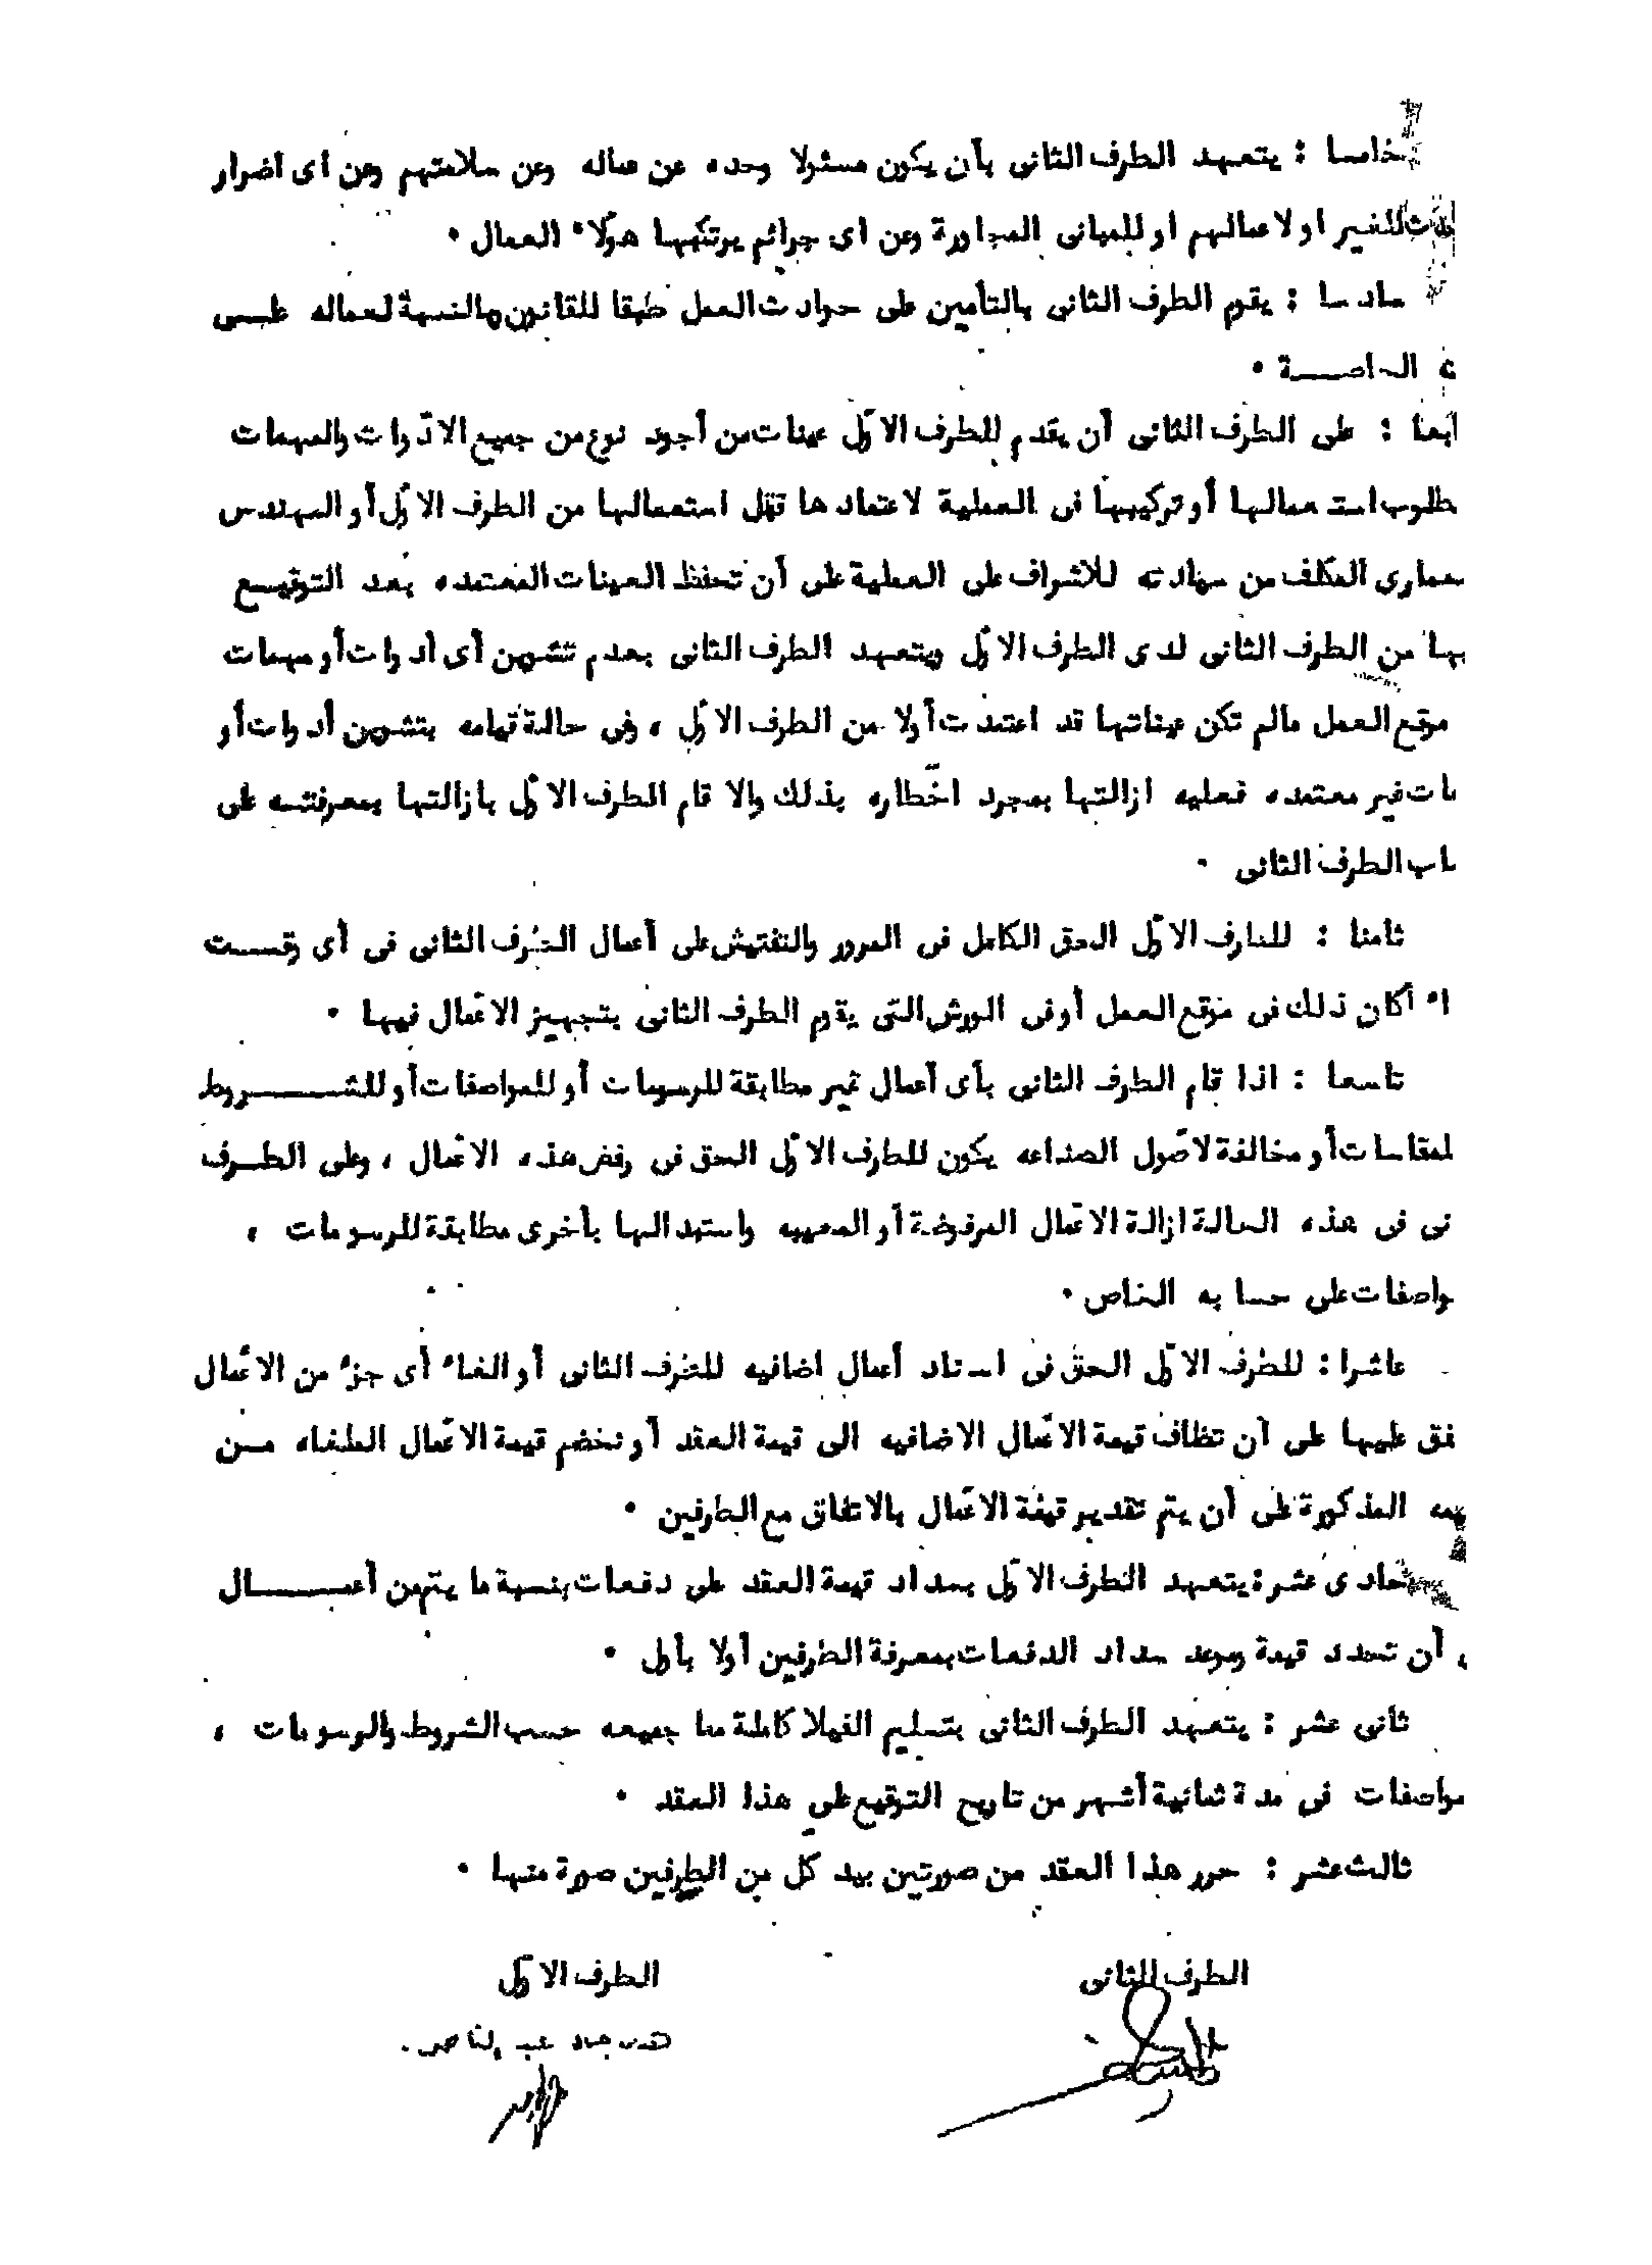 خامسا : يتعهد الطرف الثانى بأن يكون مسئولا وحده عن عماله وعن سلامتهم وعن أى اضرار
للغير او لاعمالهم او للمبانى المجاورة وعن اى جرائم يرتكبها هؤلاء العمال .
سادسا : يقوم الطرف الثانى بالتأمين على حوادث العمل طبقا للقانون وبالنسبة لعماله على
.
ابعا : على الطرف الثانى أن يقدم للطرف الاول عينات من أجود نوع من جميع الادوات والمهمات
طلوب استعمالها أو تركيبها فى العملية لاعتمادها قبل استعمالها من الطرف الاول أو المهندس
عمارى المكلف من سيادته للاشراف على العملية على أن تحفظ العينات المعتمده بعد التوقيع
يها من الطرف الثانى لدى الطرف الاول ويتعهد الطرف الثانى بعدم تشوين أى أدوات أو مهمات
موقع العمل مالم تكن عيناتها قد اعتمدت أولا من الطرف الاول ، وفى حالة قيامه بتشوين أدوات أو
ات غير معتمده فعليه ازالتها بمجرد اخطاره بذلك والا قام الطرف الاول بازالتها بمعرفته على
اب الطرف الثانى .
ثامنا : للطرف الاول الحق الكامل فى المرور والتفتيش على أعمال الطرف الثانى فى أى وقت
اء أكان ذلك فى موقع العمل أو فى الورش التى يقوم الطرف الثانى بتجهيز الاعمال فيها .
تاسعا : اذا قام الطرف الثانى بأى أعمال غير مطابقة للرسومات أو للمواصفات أو للشروط
لمقاسات أو مخالفة لاصول الصناعه يكون للطرف الاول الحق فى رفض هذه الاعمال ، وعلى الطرف
نى فى هذه الحالة ازالة الاعمال المرفوضة أو المعيبه واستبدالها بأخرى مطابقة للرسومات ،
واصفات على حسابه الخاص .
عاشرا : للطرف الاول الحق فى اسناد أعمال اضافيه للطرف الثانى أو الغاء أى جزء من الاعمال
فق عليها على أن تظاف قيمة الاعمال الاضافيه الى قيمة العقد أو تخضم قيمة الاعمال الملغاه من
يمه المذكورة على أن يتم تقدير قيمة الاعمال بالاتفاق مع الطرفين .
حادى عشر : يتعهد الطرف الاول بسداد قيمة العقد على دفعات بنسبة ما يتم من أعمال
أن تحدد قيمة وموعد سداد الدفعات بمعرفة الطرفين أولا بأول .
ثانى عشر : يتعهد الطرف الثانى بتسليم الفيلا كاملة مما جميعه حسب الشروط والرسومات ،
مواصفات فى مدة ثمانية أشهر من تاريخ التوقيع على هذا العقد .
ثالث عشر : حرر هذا العقد من صورتين بيد كل من الطرفين صورة منها .
الطرف الثانى
الطرف الاول
جمال عبد الناصر